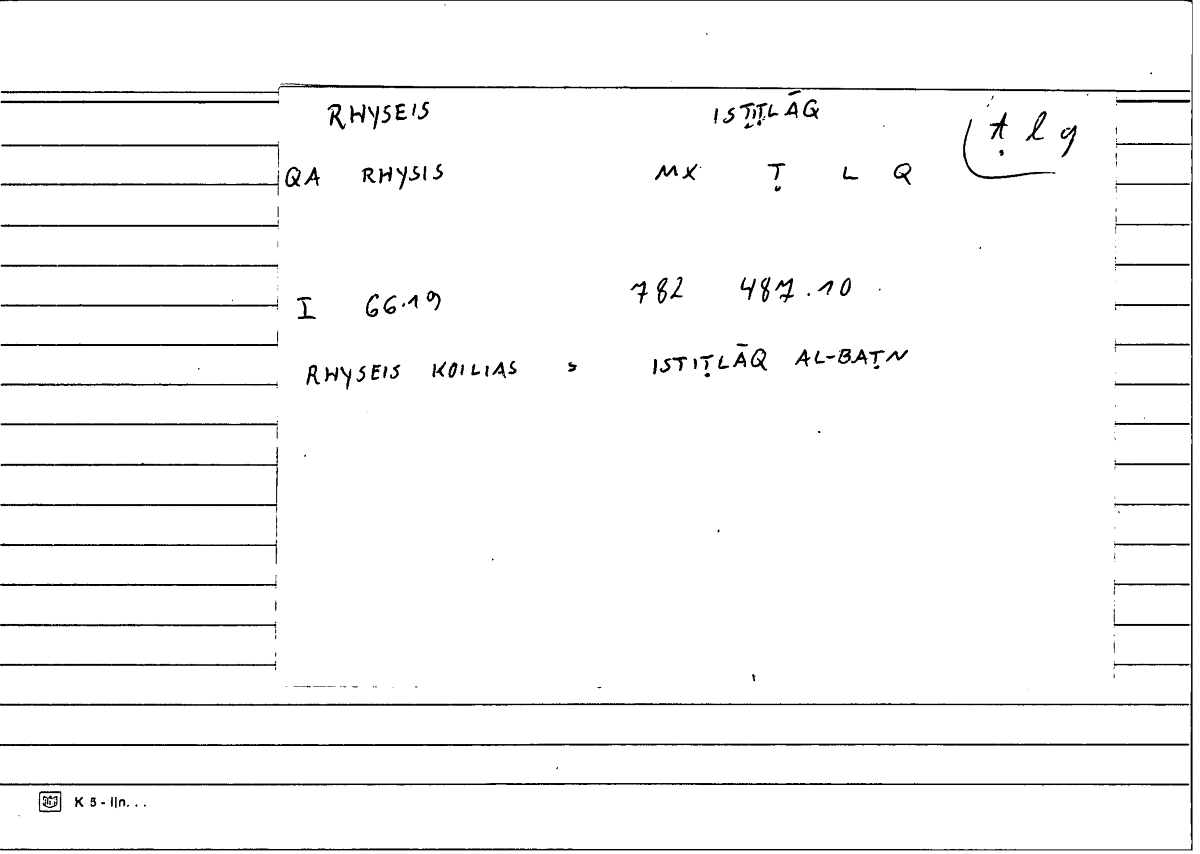 RHYSEIS ISTIṬLĀQ ṭlq
QA RHYSIS MX Ṭ L Q
I 66.19 782 487.10
RHYSEIS KOILIAS s ISTIṬLĀQ AL-BAṬN
K 5 - lln...